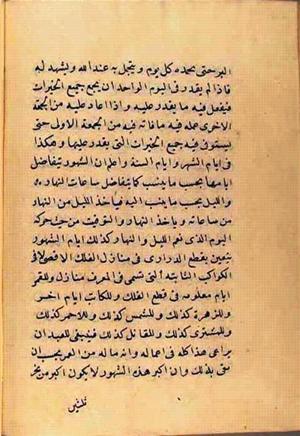 البر حتى يحمده كل يوم ويتجمل به عند الله ويشهد له
فاذا لم يقدر في اليوم الواحد ان يجمع جميع الخيرات
فيفعل فيه ما يقدر عليه واذا عاد عليه من الجمعة
الاخرى عمله فيه ما فاته فيه من الجمعة الاولى حتى
يستوفي فيه جميع الخيرات التي يقدر عليها وهكذا
في ايام الشهر وايام السنة واعلم ان الشهور تتفاضل
ايامها بحسب ما ينسب كما يتفاضل ساعات النهار
والليل بحسب ما ينسب اليه فيأخذ الليل من النهار
من ساعاته ويأخذ النهار والتوقيت من حيث حركة
اليوم الذي نعم الليل والنهار وكذلك ايام الشهور
يتعين بقطع الدراري في منازل الفلك الاقصى لا في
الكواكب الثابتة التي تسمى في العرف منازل وللقمر
ايام معلومة في قطع الفلك وللكاتب ايام اخر
وللزهرة كذلك وللشمس كذلك وللاحمر كذلك
وللمشتري كذلك وللمقاتل كذلك فينبغي للعبد ان
يراعي هذا كله في اعماله وانه ما له من العمر بحيث ان
يفي بذلك وان اكبر هذه الشهور لا يكون اكبر من نحو
ثلثين